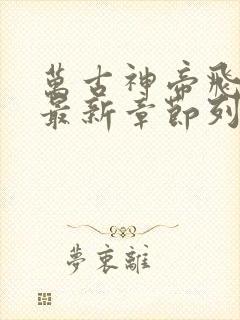 萬古神帝飛
最新章節列
夢衷離